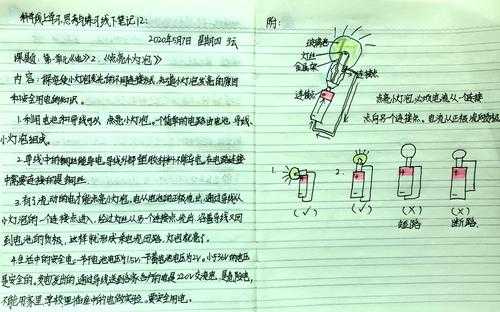 科学线上学习,思考与练习线下笔记12:
2020年5月7日 星期四
课题:第一单元《电》2.《点亮小灯泡》
内容:探究使小灯泡发光的不同连接方法,知道小灯泡发亮的原因
和安全用电的知识。
1.利用电池和导线可以点亮小灯泡。一个简单的电路由电池、导线、
小灯泡组成。
2.导线中的铜丝能导电,导线外部塑胶材料不导电,在电路连接
中需要连接的是铜丝。
3.有了流动的电才能点亮小灯泡,电从电池的正极流出,通过导线从
小灯泡的一个连接点进入,经过灯丝从另一个连接点流出,沿着导线又回
到电池的负极,这样就形成来电流回路,灯泡就亮了。
4.生活中的安全电,一节电池电压为1.5V,一节蓄电池电压为2V。小于36V的电压
是安全的,发电厂发出的,通过导线送到各家各户的电是220V交流电,是危险电,
不能用家里、学校里插座中的电做实验。要安全用电。
附:
玻璃泡
灯丝
金属架
连接点
连接点
点亮小灯泡,必须电流从一个连接
点向另一个连接点。电流从正极流向负极
1.
2.
(✓)
(✓)
(×)
(×)
短路
断路